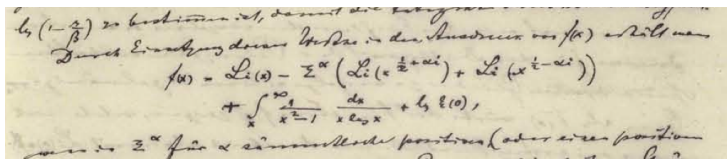 lg (1 - s/β) zu bestimmen ist, damit die
Durch Einsetzung dieses Werthes in den Ausdruck von f(x) erhält man
f(x) = Li(x) - Σ^α (Li(x^{1/2 + αi}) + Li(x^{1/2 - αi}))
+ ∫_x^∞ 1/(x²-1) dx/(x log x) + lg ξ(0),
wenn in Σ^α für α sämmtliche positiven (oder einen positiven